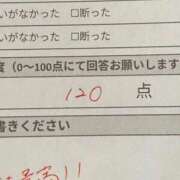 いがなかった □断った
いがなかった □断った
度（0～100点にて回答お願いします
120 点
書きください
!!